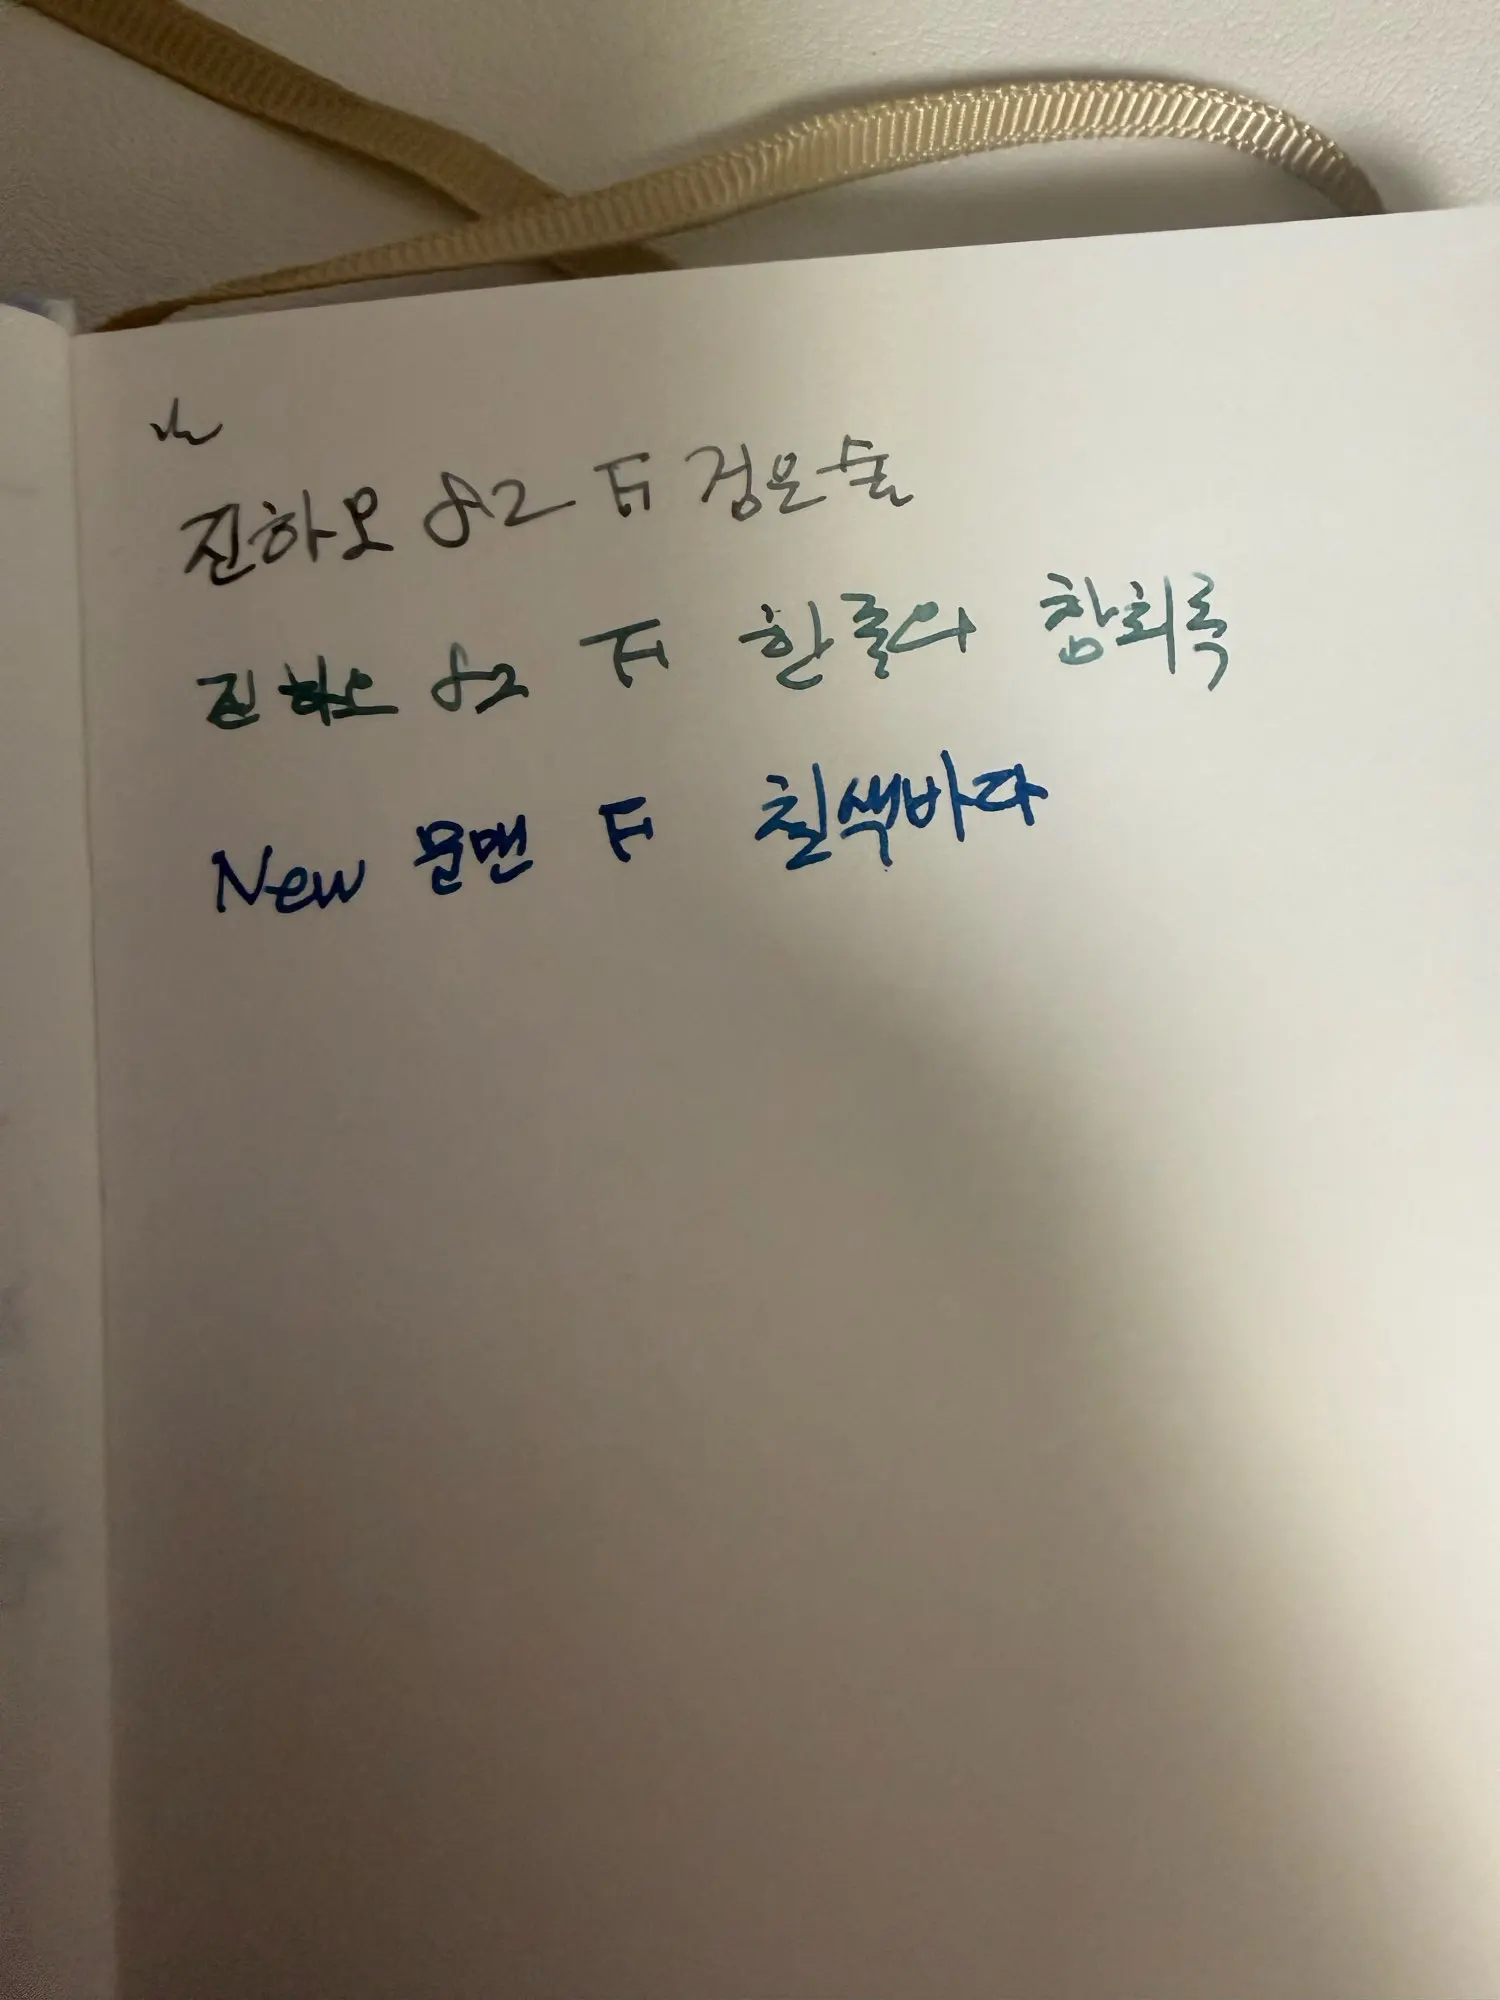 진하오 82 F 검은숲
진하오 82 F 한글의 참회록
New 문맨 F 칠색바다